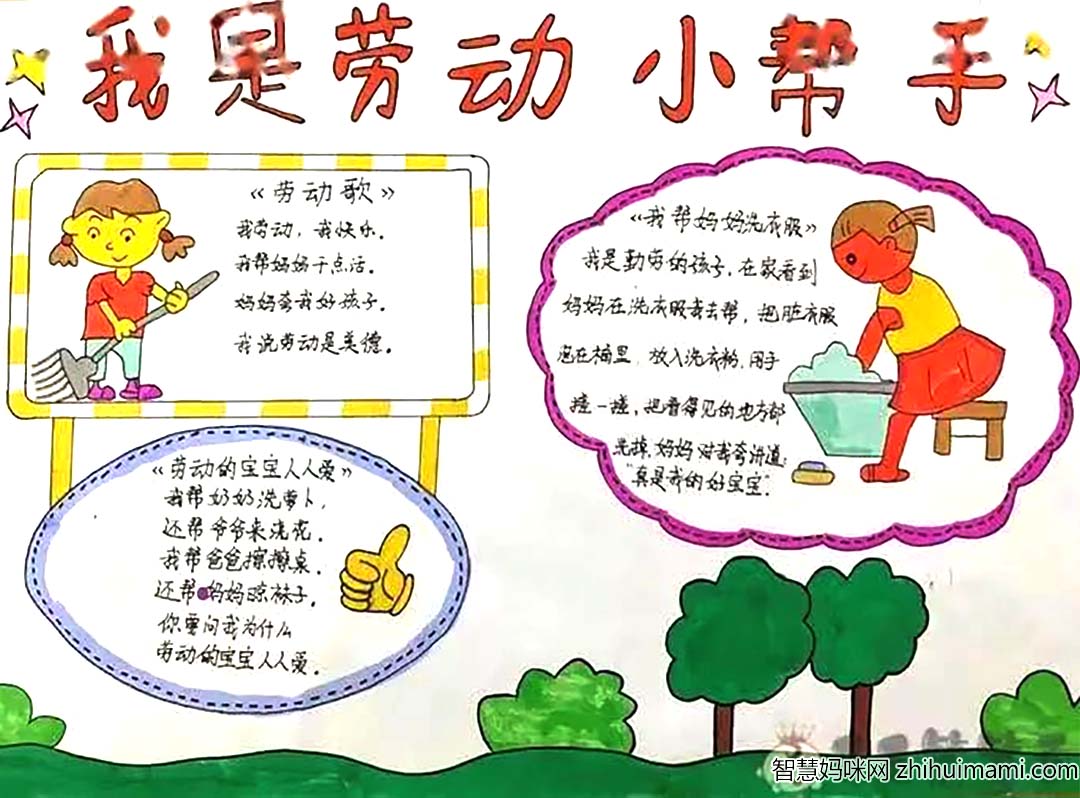 我是劳动小帮手
《劳动歌》
我劳动，我快乐。
我帮妈妈干点活。
妈妈夸我好孩子。
我说劳动是美德。
《劳动的宝宝人人爱》
我帮奶奶洗萝卜，
还帮爷爷来浇花。
我帮爸爸擦擦桌．
还帮妈妈晾袜子．
你要问我为什么
劳动的宝宝人人爱．
《我帮妈妈洗衣服》
我是勤劳的孩子，在家看到
妈妈在洗衣服我去帮，把脏衣服
泡在桶里，放入洗衣粉，用手
搓一搓，把看得见的地方都
洗掉，妈妈对我夸讲道：
"真是我的好宝宝"．
智慧妈咪网 zhihuimami.com